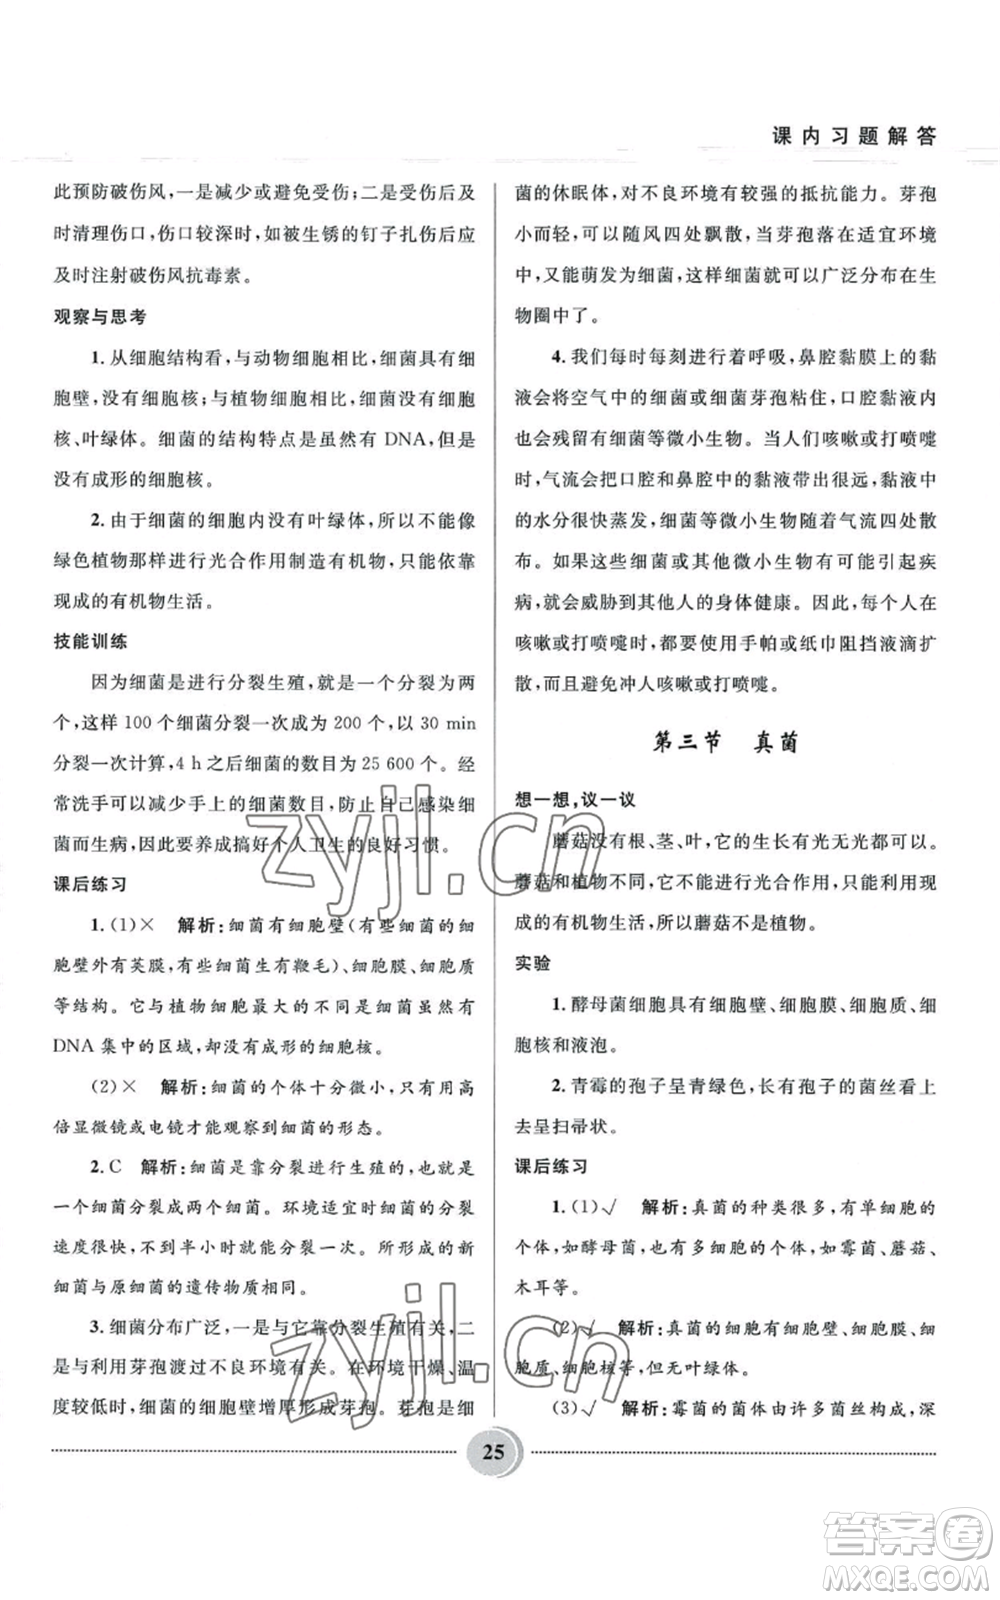 课内习题解答
此预防破伤风,一是减少或避免受伤;二是受伤后及
时清理伤口,伤口较深时,如被生锈的钉子扎伤后应
及时注射破伤风抗毒素。
观察与思考
1. 从细胞结构看,与动物细胞相比,细菌具有细
胞壁,没有细胞核;与植物细胞相比,细菌没有细胞
核、叶绿体。细菌的结构特点是虽然有 DNA,但是
没有成形的细胞核。
2. 由于细菌的细胞内没有叶绿体,所以不能像
绿色植物那样进行光合作用制造有机物,只能依靠
现成的有机物生活。
技能训练
因为细菌是进行分裂生殖,就是一个分裂为两
个,这样 100 个细菌分裂一次成为 200 个,以 30 min
分裂一次计算,4 h 之后细菌的数目为 25 600 个。经
常洗手可以减少手上的细菌数目,防止自己感染细
菌而生病,因此要养成搞好个人卫生的良好习惯。
课后练习
1. (1)× 解析:细菌有细胞壁(有些细菌的细
胞壁外有荚膜,有些细菌生有鞭毛)、细胞膜、细胞质
等结构。它与植物细胞最大的不同是细菌虽然有
DNA 集中的区域,却没有成形的细胞核。
(2)× 解析:细菌的个体十分微小,只有用高
倍显微镜或电镜才能观察到细菌的形态。
2. C 解析:细菌是靠分裂进行生殖的,也就是
一个细菌分裂成两个细菌。环境适宜时细菌的分裂
速度很快,不到半小时就能分裂一次。所形成的新
细菌与原细菌的遗传物质相同。
3. 细菌分布广泛,一是与它靠分裂生殖有关,二
是与利用芽孢渡过不良环境有关。在环境干燥、温
度较低时,细菌的细胞壁增厚形成芽孢。芽孢是细
菌的休眠体,对不良环境有较强的抵抗能力。芽孢
小而轻,可以随风四处飘散,当芽孢落在适宜环境
中,又能萌发为细菌,这样细菌就可以广泛分布在生
物圈中了。
4. 我们每时每刻进行着呼吸,鼻腔黏膜上的黏
液会将空气中的细菌或细菌芽孢粘住,口腔黏液内
也会残留有细菌等微小生物。当人们咳嗽或打喷嚏
时,气流会把口腔和鼻腔中的黏液带出很远,黏液中
的水分很快蒸发,细菌等微小生物随着气流四处散
布。如果这些细菌或其他微小生物有可能引起疾
病,就会威胁到其他人的身体健康。因此,每个人在
咳嗽或打喷嚏时,都要使用手帕或纸巾阻挡液滴扩
散,而且避免冲人咳嗽或打喷嚏。
第三节 真菌
想一想,议一议
蘑菇没有根、茎、叶,它的生长有光无光都可以。
蘑菇和植物不同,它不能进行光合作用,只能利用现
成的有机物生活,所以蘑菇不是植物。
实验
1. 酵母菌细胞具有细胞壁、细胞膜、细胞质、细
胞核和液泡。
2. 青霉的孢子呈青绿色,长有孢子的菌丝看上
去呈扫帚状。
课后练习
1. (1)√ 解析:真菌的种类很多,有单细胞的
个体,如酵母菌,也有多细胞的个体,如霉菌、蘑菇、
木耳等。
(2)√ 解析:真菌的细胞有细胞壁、细胞膜、细
胞质、细胞核等,但无叶绿体。
(3)√ 解析:霉菌的菌体由许多菌丝构成,深
25
zyjl.cn
zyjl.cn
答案卷
MXQE.COM